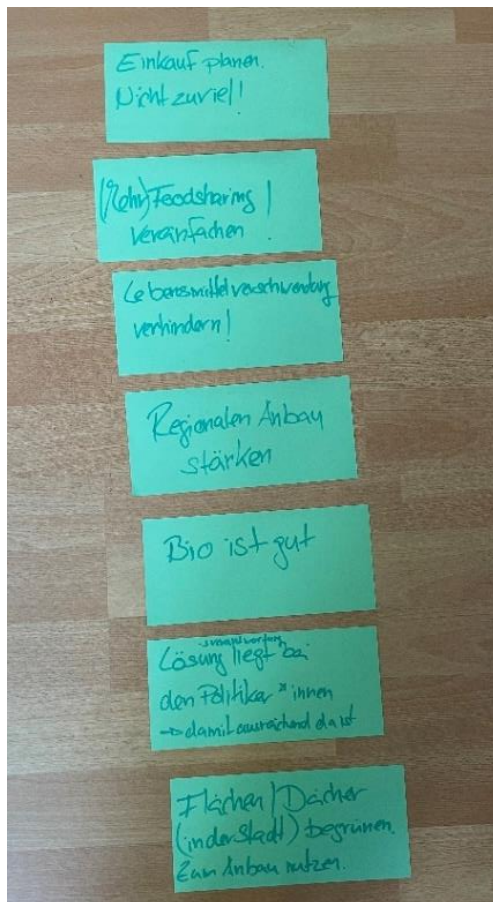 Einkauf planen.
Nicht zuviel!
(Mehr) Foodsharing!
vereinfachen
Lebensmittelverschwendung
verhindern!
Regionalen Anbau
stärken
Bio ist gut
Lösung liegt bei
den Politiker*innen
→ damit ausreichend da ist
Flächen/Dächer
(in der Stadt) begrünen.
Zum Anbau nutzen.